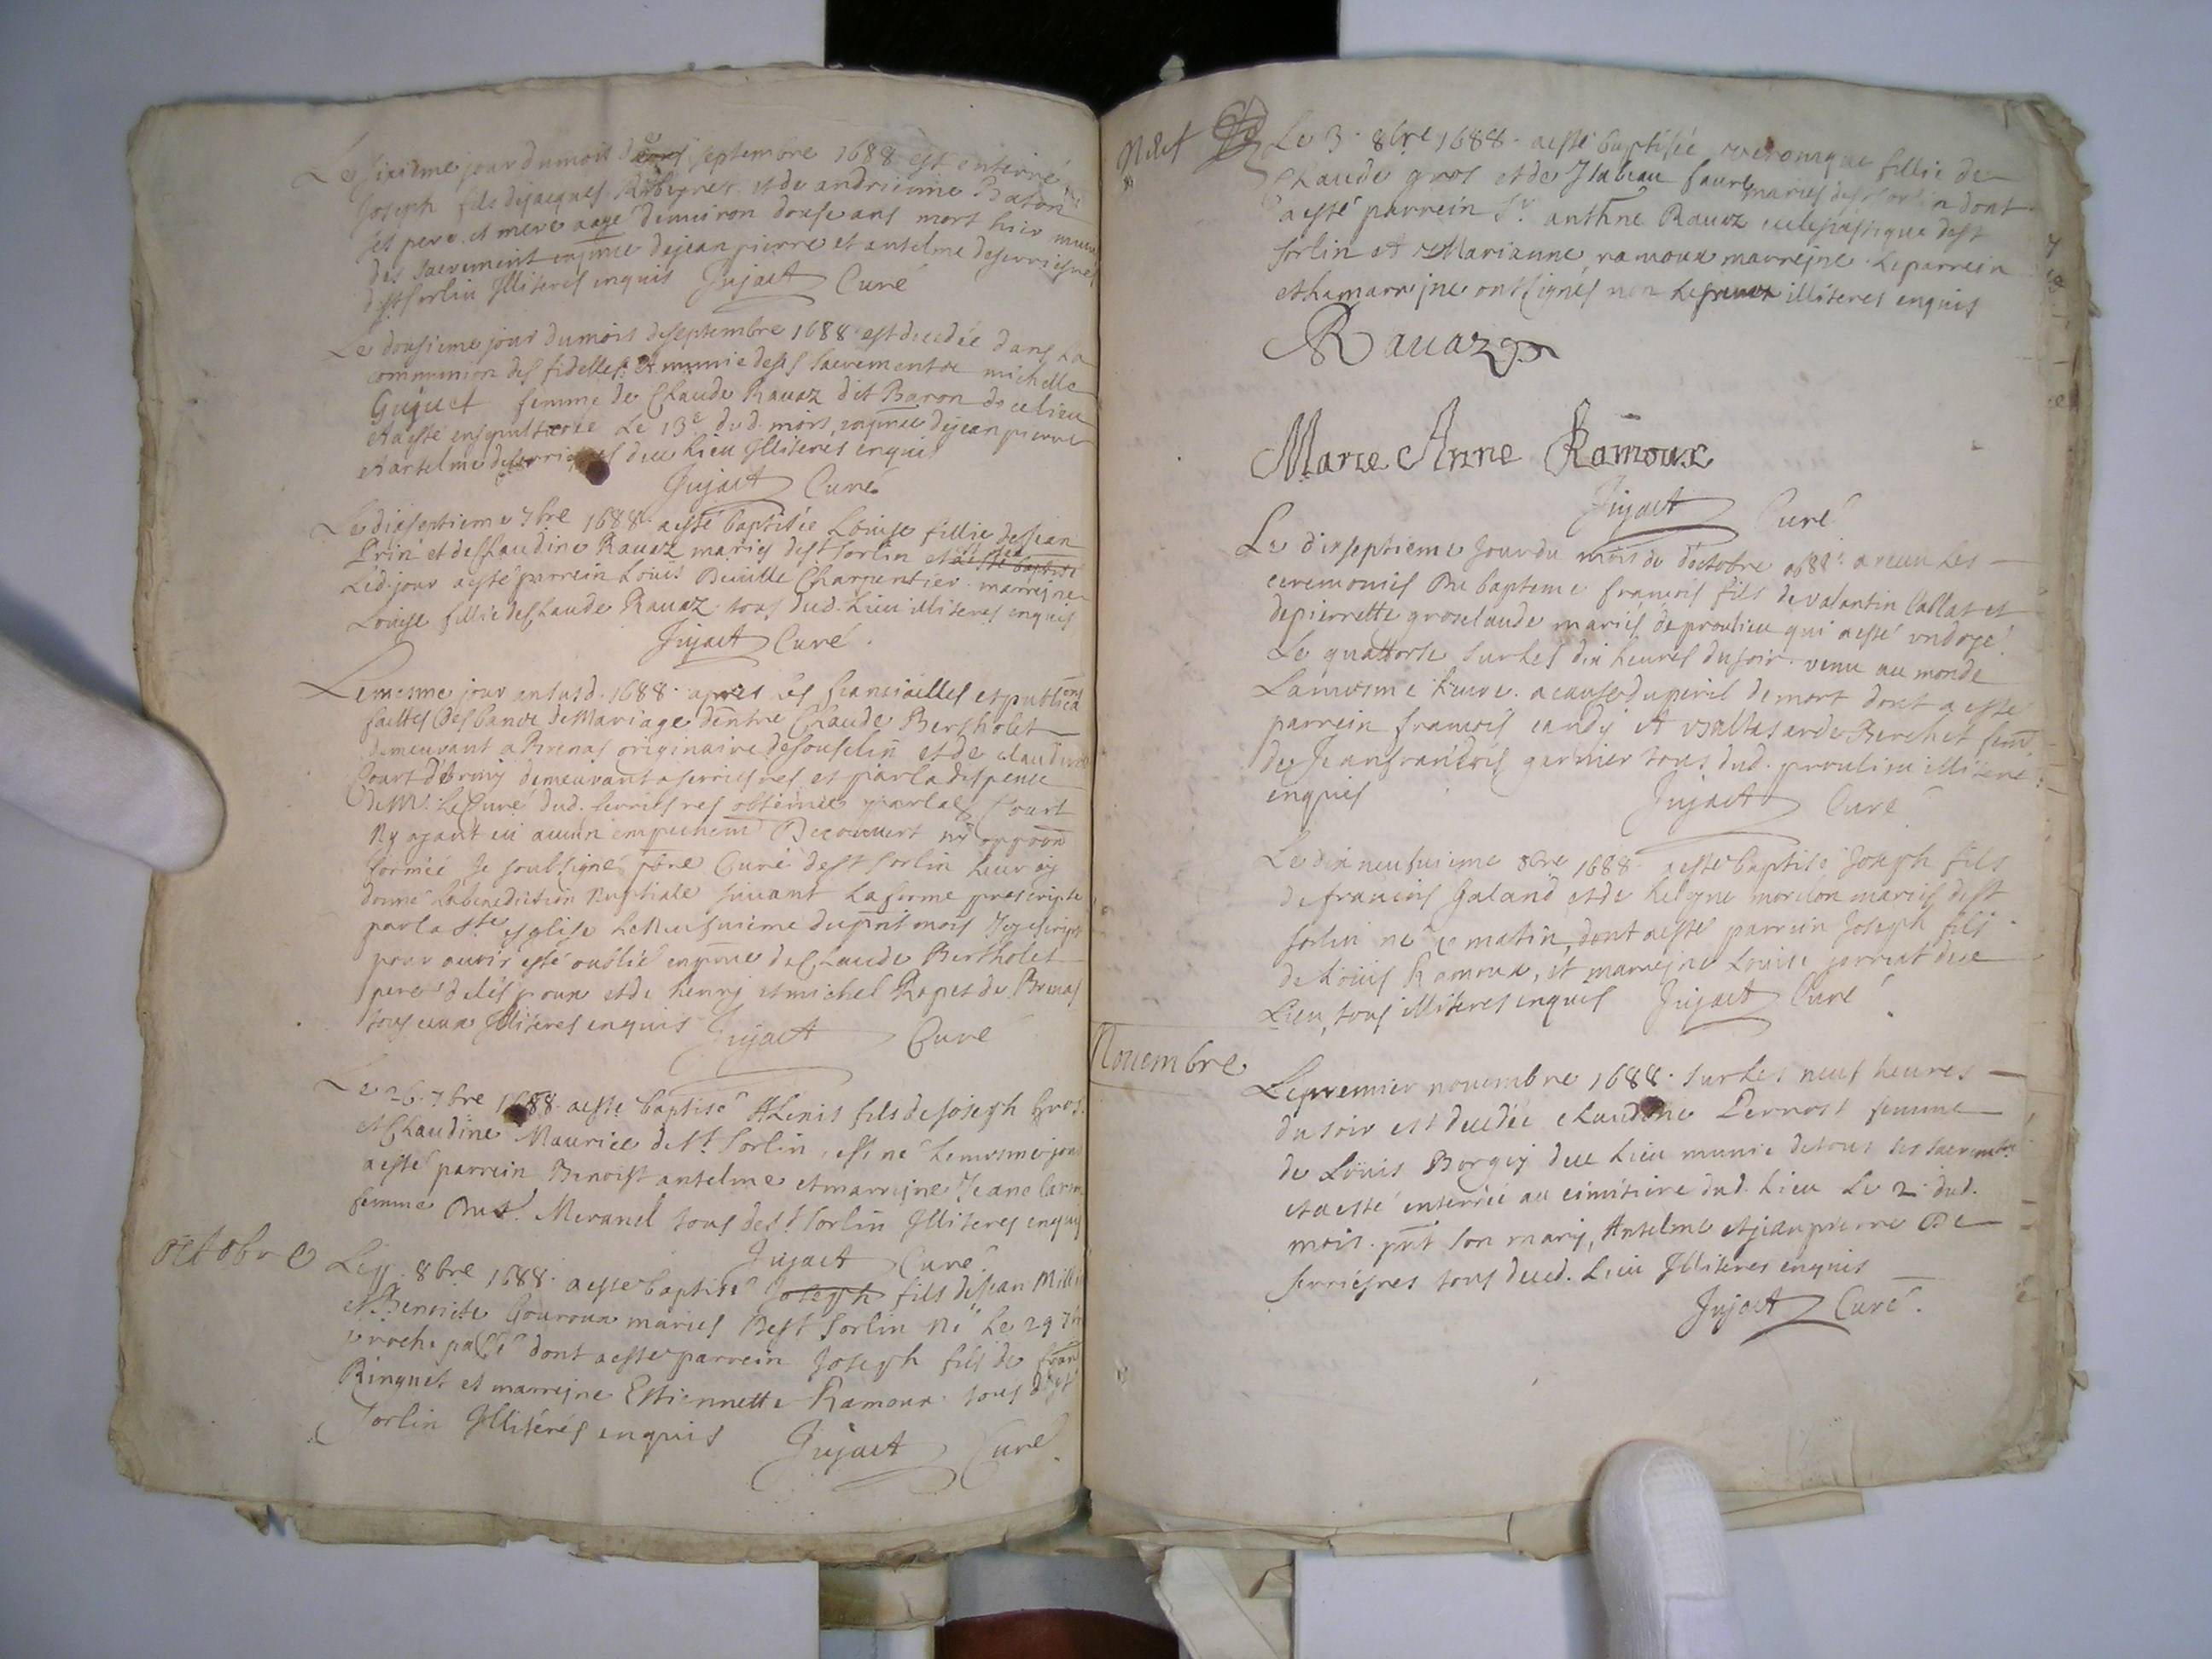 Le sixieme jour du mois septembre 1688 est enterré
Joseph fils de jacques Ribeyret et de andrienne Baton
ses pere et mere aagé denuiron douse ans mort hier muny
des sacrement en pnce de jean pierre et anselme de serriesres
de st sorlin Illiteres enquis Jujact Curé
Le dousieme jour du mois de septembre 1688 est decedée dans la
communion des fidelles et munie de ses sacrements michelle
Guguet femme de Claude Rauaz dit Baron de ce lieu
et a esté ensepulturée Le 13e dud. mois, en pnce de jean pierre
et anselme de serriesres de ce lieu Illiteres enquis
Jujact Curé
Le dixseptieme 7bre 1688 a esté baptisée Louise fillie de Jean
Prin et de Claudine Rauaz mariés de st sorlin et a esté baptisée
Led. jour a esté parrein Louis Deuille Charpentier marrejne
Louise fillie de Claude Rauaz tous dud. Lieu illiteres enquis
Jujact Curé
Le mesme jour an susd. 1688 apres les fiancailles et publica ons
faittes des bancz de Mariage dentre Claude Bertholet
demeurant a Brenas originaire de souselin et de claudine
Court demeurant a serriesres et par la dispence
de Mr. Le Curé dud. serriesres obtenue par lad. Court
Ny ayant eu aucun empechem decouuert ny oppoon
formée Je soubsigné pbre Curé de st sorlin leur ay
donné la benediction Nuptiale suiuant la forme prescripte
par la Ste eglise Le Neufuieme du pnt mois Icy escript
pour auoir esté oublié en pnce de Claude Bertholet
pere de lespoux et de henry et michel Rapet de Brenas
tous eux Illiteres enquis Jujact Curé
Le 26. 7bre 1688 a esté baptisé fils de Joseph Gros
et Claudine Maurice de St. Sorlin est né Le mesme jour
a esté parrein Benoist anselme et marrejne Jeane
femme tous de st Sorlin Illiteres enquis
Jujact Curé
octobre
8bre 1688 a esté baptisé Joseph fils de Jean
et Benoite Gouroux mariés de st Sorlin né Le 29 7bre
proche passé dont a esté parrein Joseph fils de
Rinquet et marrejne Estiennette Ramoux tous de st
Sorlin Illiterés enquis Jujact Curé
Le 3 8bre 1688 a esté baptisée veronique fillie de
Claude gros et de Isabeau faure mariés de st sorlin dont
a esté parrein Sr. anthne Rauaz eclesiastique de st
sorlin et Marianne ramoux marrejne. Le parrein
et la marrejne ont signés non illiteres enquis
Rauaz
Marie Anne Ramoux
Jujact Curé
Le dixseptieme Jour du mois de doctobre 1688 a receu Les
ceremonies Du bapteme francois fils de valantin Callat et
de pierrette groselaude mariés de proulieu qui a esté ondoyé
Le quattorse sur les dix heures du soir venu au monde
La mesme heure a cause du peril de mort dont a esté
parrein francois candy et Baltesarde Berchet fem.
de Jean francois garnier tous dud. proulieu illiteres
enquis Jujact Curé
Le dix neufuieme 8bre 1688 a esté baptisé Joseph fils
de francois Galand et de heleyne morelon mariés de st
sorlin né ce matin, dont a esté parrein Joseph fils
de Louis Ramoux, et marrejne Louise de ce
Lieu, tous illiteres enquis Jujact Curé
Nouembre
Le premier nouembre 1688 sur Les neuf heures
du soir est decedée claudine Pernost femme
de Louis Borgey de ce Lieu munie de tous ses sacrements
et a esté enterrée au cimitiere dud. Lieu Le 2 dud.
mois. pnt son mary, Anselme et jean pierre De
serriesres tous de ced. Lieu Illiteres enquis
Jujact Curé